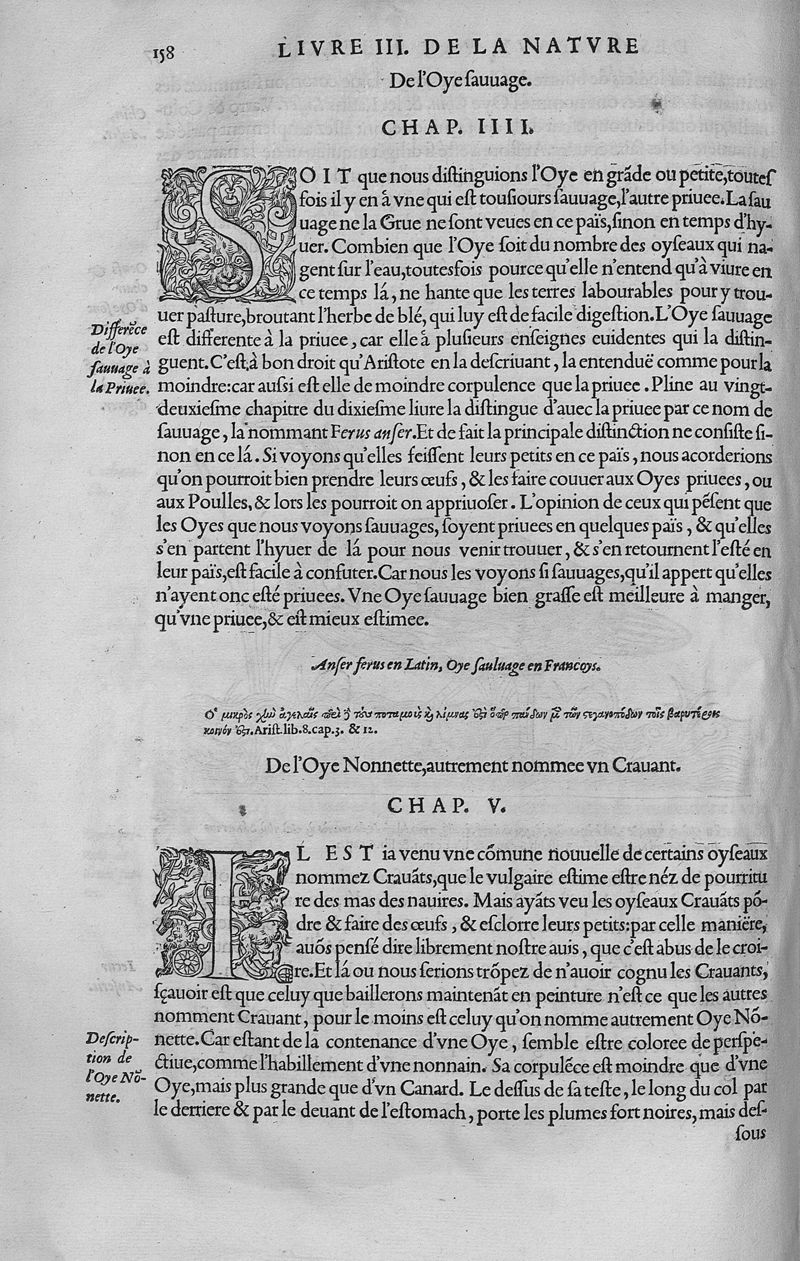 158
LIVRE III. DE LA NATVRE
De l'Oye ſauuage.
CHAP. IIII.
SOIT que nous diſtinguions l'Oye en grãde ou petite, toutes
fois il y en à vne qui eſt touſiours ſauuage, l'autre priuee. La ſau
uage ne la Grue ne ſont veues en ce païs, ſinon en temps d'hy-
uer. Combien que l'Oye ſoit du nombre des oyſeaux qui na-
gent ſur l'eau, toutesfois pource qu'elle n'entend qu'à viure en
ce temps lá, ne hante que les terres labourables pour y trou-
uer paſture, broutant l'herbe de blé, qui luy eſt de facile digeſtion. L'Oye ſauuage
eſt differente à la priuee, car elle à pluſieurs enſeignes euidentes qui la diſtin-
guent. C'eſt, à bon droit qu'Ariſtote en la deſcriuant, la entenduë comme pour la
moindre: car auſsi eſt elle de moindre corpulence que la priuee. Pline au vingt-
deuxieſme chapitre du dixieſme liure la diſtingue d'auec la priuee par ce nom de
ſauuage, la nommant Ferus anſer. Et de fait la principale diſtinction ne conſiſte ſi-
non en ce lá. Si voyons qu'elles feiſſent leurs petits en ce païs, nous acorderions
qu'on pourroit bien prendre leurs œufs, & les faire couuer aux Oyes priuees, ou
aux Poulles, & lors les pourroit on appriuoſer. L'opinion de ceux qui pẽſent que
les Oyes que nous voyons ſauuages, ſoyent priuees en quelques païs, & qu'elles
s'en partent l'hyuer de lá pour nous venir trouuer, & s'en retournent l'eſté en
leur païs, eſt facile à confuter. Car nous les voyons ſi ſauuages, qu'il appert qu'elles
n'ayent onc eſté priuees. Vne Oye ſauuage bien graſſe eſt meilleure à manger,
qu'vne priuee, & eſt mieux eſtimee.
Differẽce
de l'Oye
ſauuage à
la Priuee.
Anſer ferus en Latin, Oye ſauluage en Francoys.
Ὁ μικρὸς χὴν ἀγελαῖος περὶ τοὺς ποταμοὺς καὶ λίμνας
Ariſt. lib. 8. cap. 3. & 12.
De l'Oye Nonnette, autrement nommee vn Crauant.
CHAP. V.
IL EST ia venu vne cõmune nouuelle de certains oyſeaux
nommez Crauãts, que le vulgaire eſtime eſtre néz de pourritu
re des mas des nauires. Mais ayãts veu les oyſeaux Crauãts põ-
dre & faire des œufs, & eſclorre leurs petits: par celle maniëre,
auõs penſé dire librement noſtre auis, que c'eſt abus de le croi-
re. Et lá ou nous ſerions trõpez de n'auoir cognu les Crauants,
ſçauoir eſt que celuy que baillerons maintenãt en peinture n'eſt ce que les autres
nomment Crauant, pour le moins eſt celuy qu'on nomme autrement Oye Nõ-
nette. Car eſtant de la contenance d'vne Oye, ſemble eſtre coloree de perſpe-
ctiue, comme l'habillement d'vne nonnain. Sa corpulẽce eſt moindre que d'vne
Oye, mais plus grande que d'vn Canard. Le deſſus de ſa teſte, le long du col par
le derriere & par le deuant de l'eſtomach, porte les plumes fort noires, mais deſ-
Deſcrip-
tion de
l'Oye Nõ-
nette.
ſous